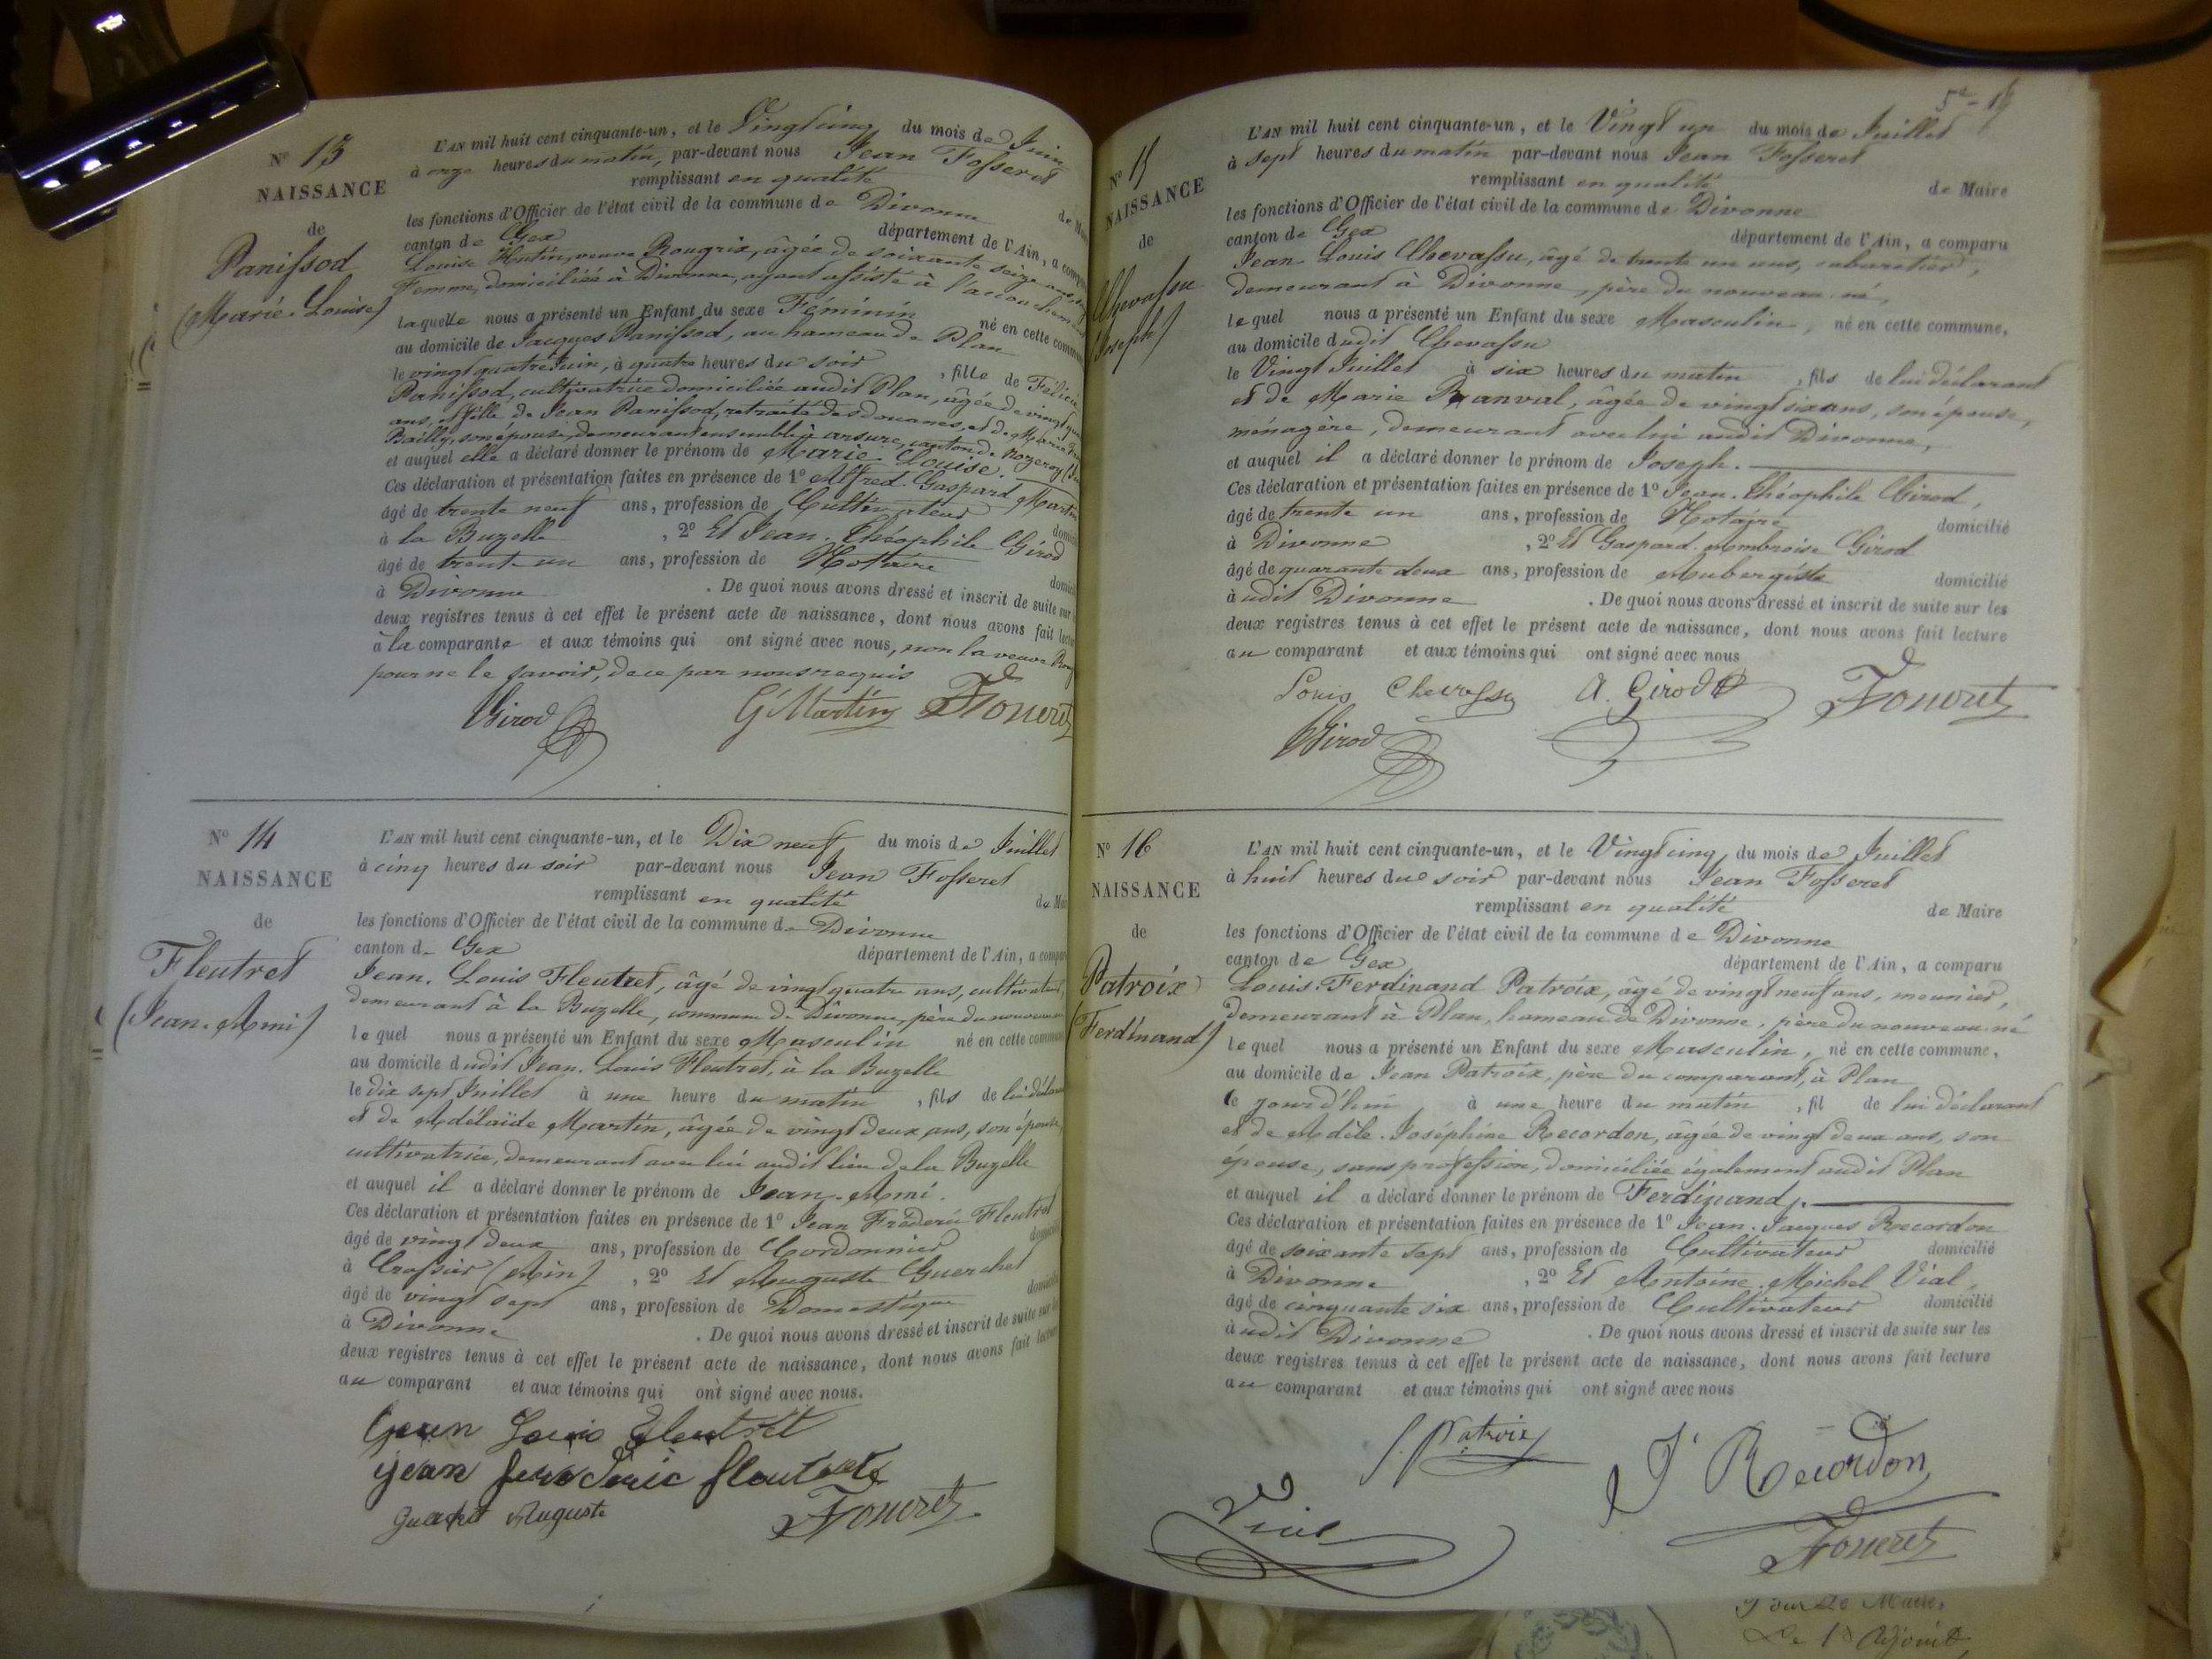 Nº 13
NAISSANCE
de
Panissod
(Marie-Louise)
L'AN mil huit cent cinquante-un, et le Vingt cinq du mois de Juin
à onze heures du matin, par-devant nous Jean Fosseret
remplissant en qualité de
les fonctions d'Officier de l'état civil de la commune de Divonne
canton de Gex département de l'Ain, a
Louise Hutin, veuve Rougrix, âgée de soixante seize ans,
femme, domiciliée à Divonne, ayant assisté à l'accouchement
laquelle nous a présenté un Enfant du sexe Féminin né en cette
au domicile de Jacques Panissod, au hameau de Plan
le vingt quatre Juin, à quatre heures du soir, fille de
Panissod, cultivatrice domiciliée audit Plan, âgée de vingt
ans, fille de Jean Panissod, retraité des douanes, et de
Bailly, son épouse, demeurant ensemble à arsure, canton de Nozeroy
et auquel elle a déclaré donner le prénom de Marie Louise.
Ces déclaration et présentation faites en présence de 1º Alfred Gaspard Martin
âgé de trente neuf ans, profession de Cultivateur
à la Buzelle, 2º Et Jean-Théophile Girod
âgé de trente un ans, profession de Notaire
à Divonne. De quoi nous avons dressé et inscrit de suite sur
deux registres tenus à cet effet le présent acte de naissance, dont nous avons fait
à la comparante et aux témoins qui ont signé avec nous, non la veuve
pour ne le savoir, de ce par nous requis
Girod G Martin Fosseret
Nº 14
NAISSANCE
de
Fleutret
(Jean-Ami)
L'AN mil huit cent cinquante-un, et le Dix neuf du mois de Juillet
à cinq heures du soir par-devant nous Jean Fosseret
remplissant en qualité de
les fonctions d'Officier de l'état civil de la commune de Divonne
canton de Gex département de l'Ain, a
Jean-Louis Fleutret, âgé de vingt quatre ans, cultivateur,
demeurant à la Buzelle, commune de Divonne, père du
lequel nous a présenté un Enfant du sexe Masculin né en cette
au domicile dudit Jean-Louis Fleutret, à la Buzelle
le dix sept Juillet à une heure du matin, fils de lui
et de Adélaïde Martin, âgée de vingt deux ans, son épouse,
cultivatrice, demeurant avec lui audit lieu de la Buzelle
et auquel il a déclaré donner le prénom de Jean-Ami.
Ces déclaration et présentation faites en présence de 1º Jean Fréderic Fleutret
âgé de vingt deux ans, profession de Cordonnier
à Crassier (Ain), 2º Et Auguste Guerchet
âgé de vingt sept ans, profession de Domestique
à Divonne. De quoi nous avons dressé et inscrit de suite sur
deux registres tenus à cet effet le présent acte de naissance, dont nous avons fait
au comparant et aux témoins qui ont signé avec nous.
Jean Louis Fleutret
Auguste Fosseret
Nº 15
NAISSANCE
de
Chevassu
(Joseph)
L'AN mil huit cent cinquante-un, et le Vingt un du mois de Juillet
à sept heures du matin par-devant nous Jean Fosseret
remplissant en qualité de Maire
les fonctions d'Officier de l'état civil de la commune de Divonne
canton de Gex département de l'Ain, a comparu
Jean-Louis Chevassu, âgé de trente un ans, cabaretier,
demeurant à Divonne, père du nouveau-né,
lequel nous a présenté un Enfant du sexe Masculin, né en cette commune,
au domicile dudit Chevassu
le Vingt Juillet à six heures du matin, fils de lui déclarant
et de Marie Ranval, âgée de vingt six ans, son épouse,
ménagère, demeurant avec lui audit Divonne,
et auquel il a déclaré donner le prénom de Joseph.
Ces déclaration et présentation faites en présence de 1º Jean-Théophile Girod,
âgé de trente un ans, profession de Notaire domicilié
à Divonne, 2º Et Gaspard-Ambroise Girod
âgé de quarante deux ans, profession de Aubergiste domicilié
audit Divonne. De quoi nous avons dressé et inscrit de suite sur les
deux registres tenus à cet effet le présent acte de naissance, dont nous avons fait lecture
au comparant et aux témoins qui ont signé avec nous
Louis Chevassu A. Girod Fosseret
Girod
Nº 16
NAISSANCE
de
Patroix
(Ferdinand)
L'AN mil huit cent cinquante-un, et le Vingt cinq du mois de Juillet
à huit heures du soir par-devant nous Jean Fosseret
remplissant en qualité de Maire
les fonctions d'Officier de l'état civil de la commune de Divonne
canton de Gex département de l'Ain, a comparu
Louis-Ferdinand Patroix, âgé de vingt neuf ans, meunier,
demeurant à Plan, hameau de Divonne, père du nouveau-né
lequel nous a présenté un Enfant du sexe Masculin, né en cette commune,
au domicile de Jean Patroix, père du comparant, à Plan
le jourd'hui à une heure du matin, fil de lui déclarant
et de Adèle-Joséphine Recordon, âgée de vingt deux ans, son
épouse, sans profession, domiciliée également audit Plan
et auquel il a déclaré donner le prénom de Ferdinand.
Ces déclaration et présentation faites en présence de 1º Jean-Jacques Recordon
âgé de soixante sept ans, profession de Cultivateur domicilié
à Divonne, 2º Et Antoine-Michel Vial,
âgé de cinquante six ans, profession de Cultivateur domicilié
audit Divonne. De quoi nous avons dressé et inscrit de suite sur les
deux registres tenus à cet effet le présent acte de naissance, dont nous avons fait lecture
au comparant et aux témoins qui ont signé avec nous
Patroix J Recordon
Vial Fosseret